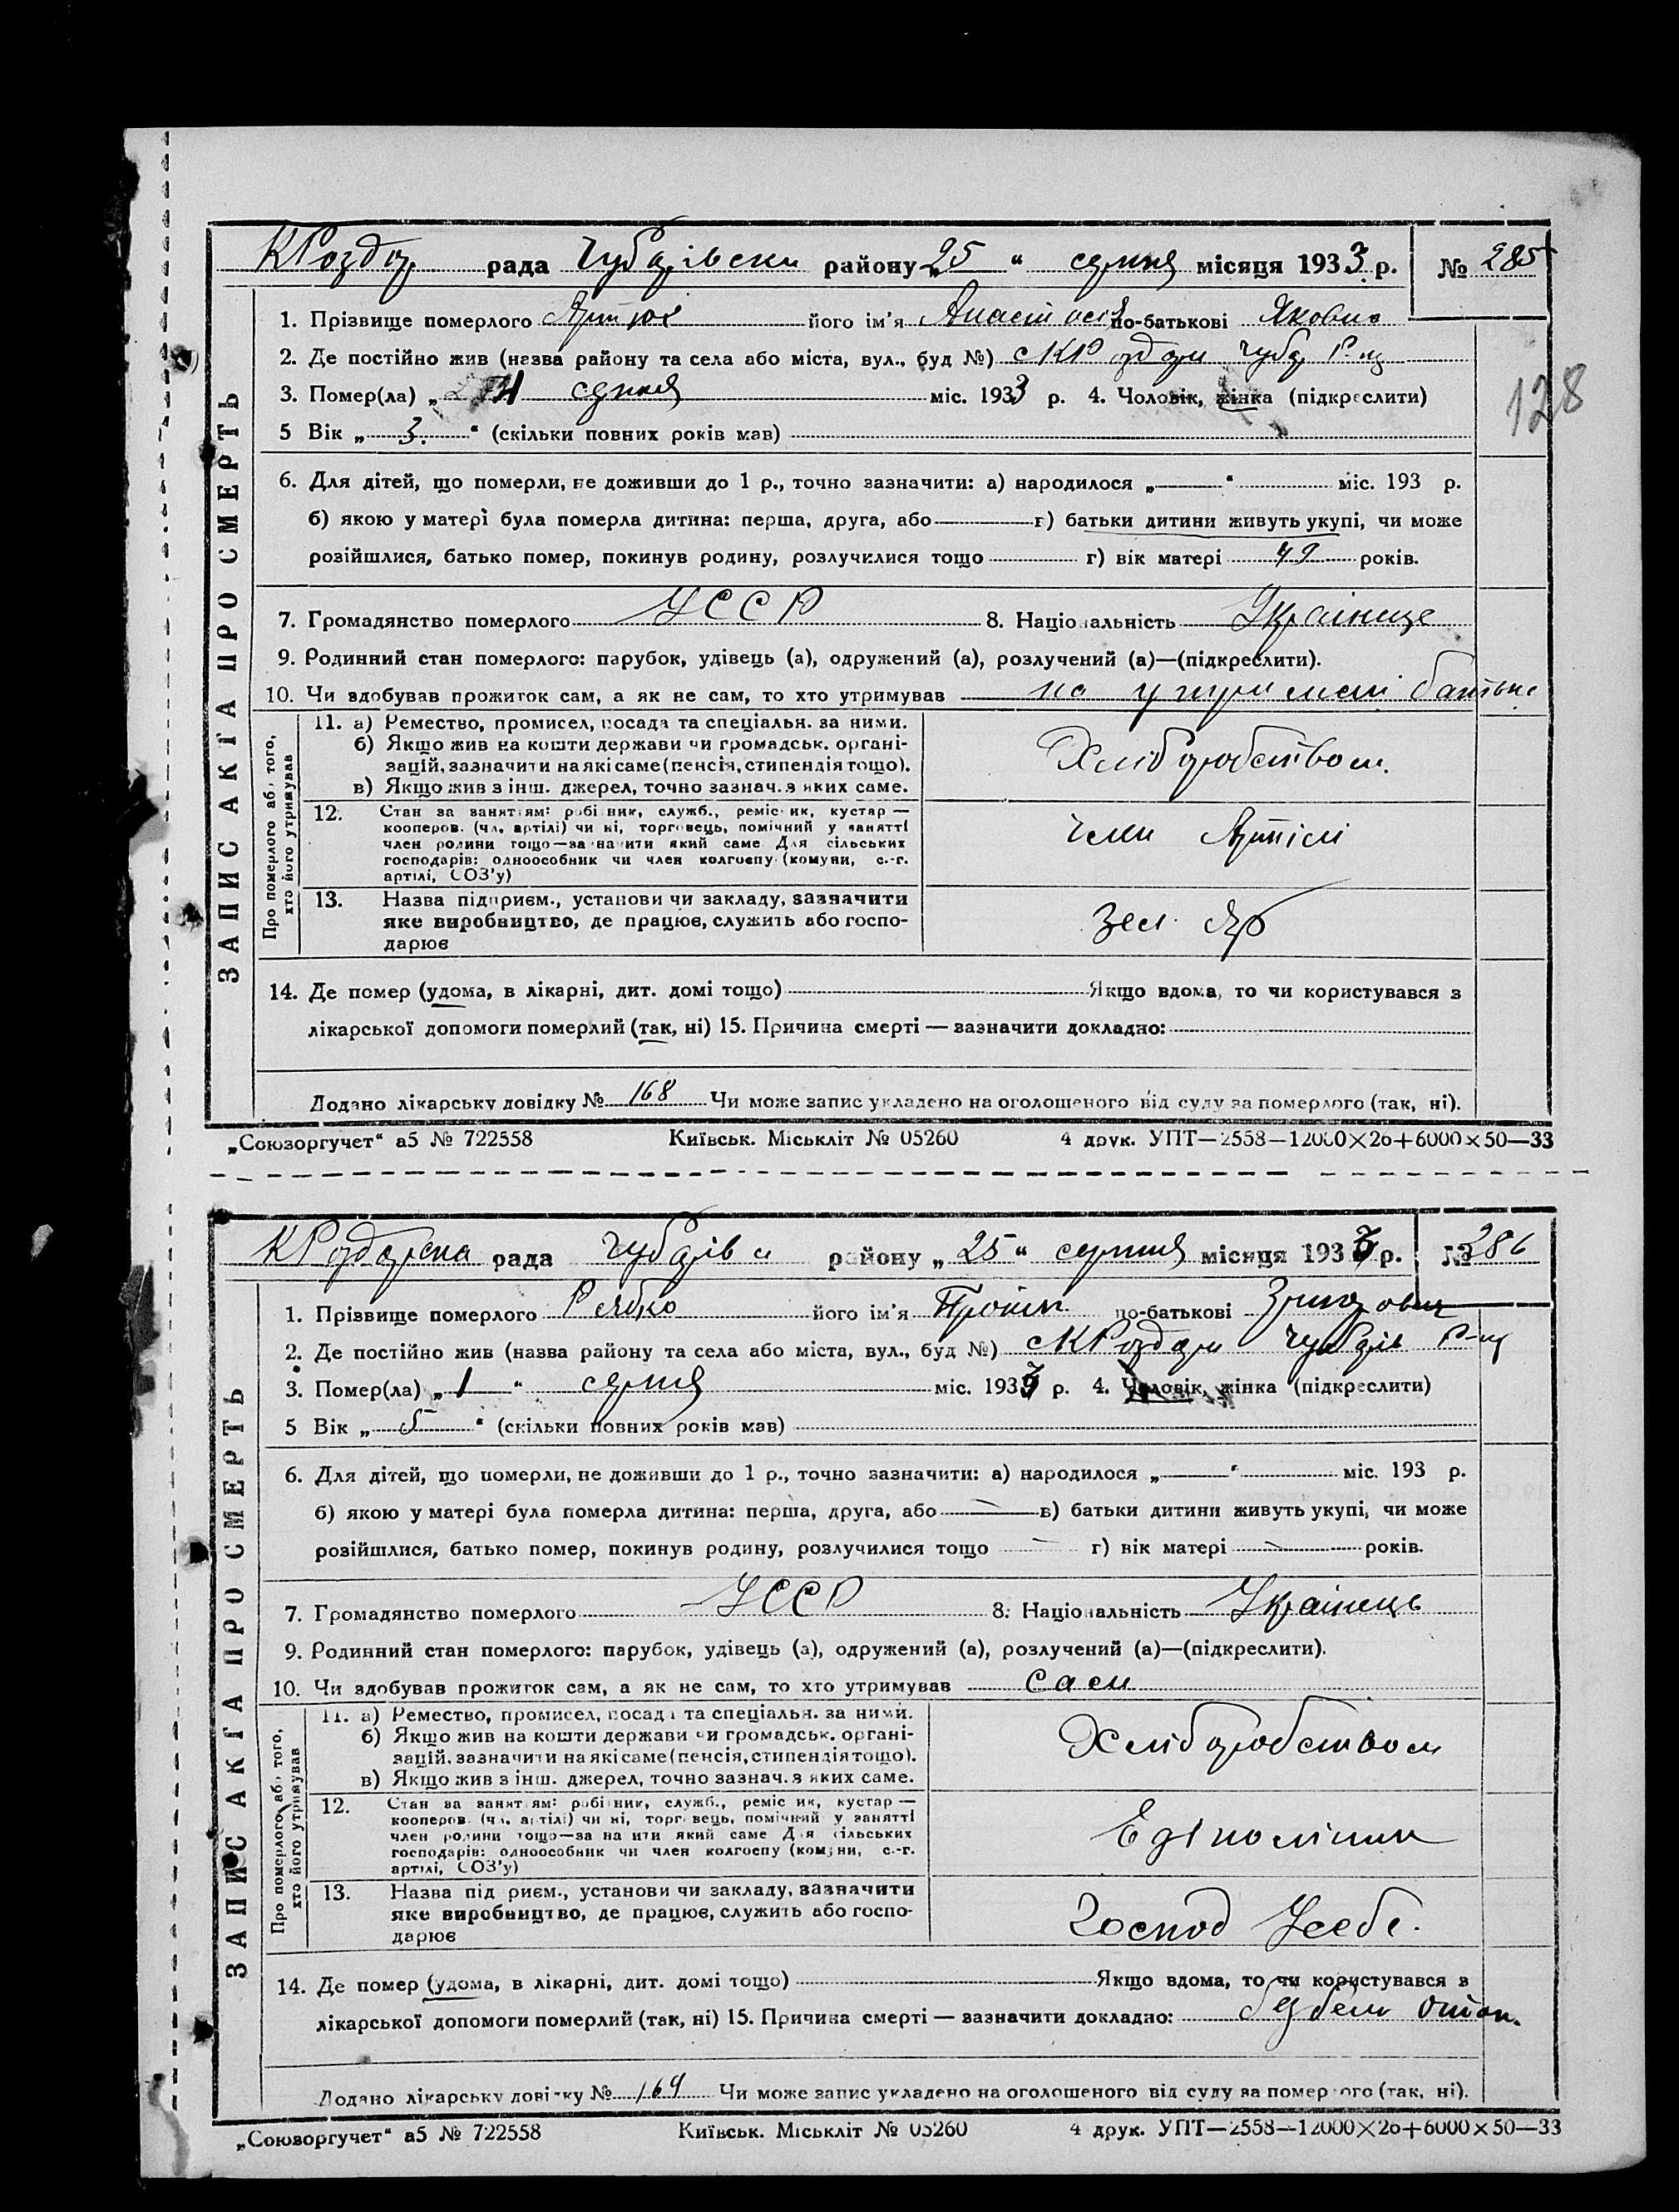 КРоздор рада Чубарівськ району „25“ серпня місяця 1933 р. № 285
128
ЗАПИС АКГА ПРО СМЕРТЬ
1. Прізвище померлого Артюх його ім'я Анастасія по-батькові Яковна
2. Де постійно жив (назва району та села або міста, вул., буд №) с КРоздори Чубар Р-ну
3. Помер(ла) „ серпня міс. 1933 р. 4. Чоловік, жінка (підкреслити)
5 Вік „ 3. “ (скільки повних років мав)
6. Для дітей, що померли, не доживши до 1 р., точно зазначити: а) народилося „ “ міс. 193 р.
б) якою у матері була померла дитина: перша, друга, або г) батьки дитини живуть укупі, чи може
розійшлися, батько помер, покинув родину, розлучилися тощо г) вік матері 49 років.
7. Громадянство померлого УССР 8. Національність Українце
9. Родинний стан померлого: парубок, удівець (а), одружений (а), розлучений (а)—(підкреслити).
10. Чи здобував прожиток сам, а як не сам, то хто утримував на утримані батька
Про померлого або того, хто його утримував
11. а) Ремество, промисел, посада та спеціальн. за ними.
б) Якщо жив на кошти держави чи громадськ. органі-
зацій, зазначити на які саме (пенсія, стипендія тощо).
в) Якщо жив з інш. джерел, точно зазнач. з яких саме.
Хліборобством.
12. Стан за заняттям: робітник, служб., ремісник, кустар —
кооперов. (чл. артілі) чи ні, торговець, помічний у занятті
член родини тощо—зазначити який саме Для сільських
господарів: одноособник чи член колгоспу (комуни, с.-г.
артілі, СОЗ'у)
член Артілі
13. Назва підприєм., установи чи закладу, зазначити
яке виробництво, де працює, служить або госпо-
дарює
Зел. Яр
14. Де помер (удома, в лікарні, дит. домі тощо) Якщо вдома, то чи користувався з
лікарської допомоги померлий (так, ні) 15. Причина смерті — зазначити докладно:
Додано лікарську довідку № 168 Чи може запис укладено на оголошеного від суду за померлого (так, ні).
„Союзоргучет“ а5 № 722558 Київськ. Міськліт № 05260 4 друк. УПТ—2558—12000×26+6000×50—33
КРоздорська рада Чубарівськ району „25“ серпня місяця 1933 р. № 286
ЗАПИС АКГА ПРО СМЕРТЬ
1. Прізвище померлого Рябко його ім'я по-батькові Григорович
2. Де постійно жив (назва району та села або міста, вул., буд №) с КРоздори Чубарів Р-ну
3. Помер(ла) „1“ серпня міс. 1933 р. 4. Чоловік, жінка (підкреслити)
5 Вік „ 5 “ (скільки повних років мав)
6. Для дітей, що померли, не доживши до 1 р., точно зазначити: а) народилося „ “ міс. 193 р.
б) якою у матері була померла дитина: перша, друга, або в) батьки дитини живуть укупі, чи може
розійшлися, батько помер, покинув родину, розлучилися тощо г) вік матері років.
7. Громадянство померлого УССР 8. Національність Українець
9. Родинний стан померлого: парубок, удівець (а), одружений (а), розлучений (а)—(підкреслити).
10. Чи здобував прожиток сам, а як не сам, то хто утримував Сам
Про померлого або того, хто його утримував
11. а) Ремество, промисел, посада та спеціальн. за ними.
б) Якщо жив на кошти держави чи громадськ. органі-
зацій, зазначити на які саме (пенсія, стипендія тощо).
в) Якщо жив з інш. джерел, точно зазнач. з яких саме.
Хліборобством
12. Стан за заняттям: робітник, служб., ремісник, кустар —
кооперов. (чл. артілі) чи ні, торговець, помічний у занятті
член родини тощо—зазначити який саме Для сільських
господарів: одноособник чи член колгоспу (комуни, с.-г.
артілі, СОЗ'у)
13. Назва підприєм., установи чи закладу, зазначити
яке виробництво, де працює, служить або госпо-
дарює
Господ Усебе.
14. Де помер (удома, в лікарні, дит. домі тощо) Якщо вдома, то чи користувався з
лікарської допомоги померлий (так, ні) 15. Причина смерті — зазначити докладно:
Додано лікарську довідку № 169 Чи може запис укладено на оголошеного від суду за померлого (так, ні).
„Союзоргучет“ а5 № 722558 Київськ. Міськліт № 05260 4 друк. УПТ—2558—12000×26+6000×50—33